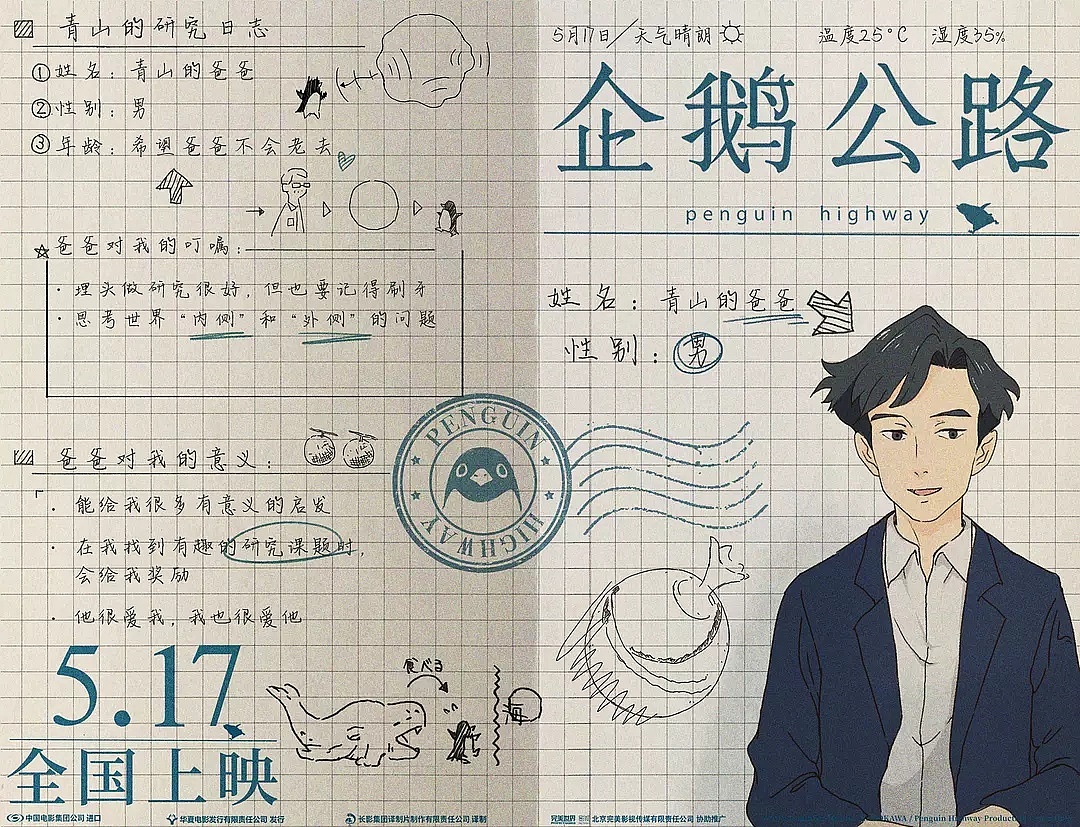 青山的研究日志
①姓名：青山的爸爸
②性别：男
③年龄：希望爸爸不会老去
爸爸对我的叮嘱：
· 埋头做研究很好，但也要记得刷牙
· 思考世界“内侧”和“外侧”的问题
爸爸对我的意义：
· 能给我很多有意义的启发
· 在我找到有趣的研究课题时，
会给我奖励
· 他很爱我，我也很爱他
5.17
全国上映
食べる
海
中国电影集团公司 进口
华夏电影发行有限责任公司 发行
长影集团译制片制作有限责任公司 译制
PENGUIN
HIGHWAY
5月17日/天气晴朗
温度25°C 湿度35%
企鹅公路
penguin highway
姓名：青山的爸爸
性别：男
完美世界
北京完美影视传媒有限责任公司 协助推广
KAWA / Penguin Highway Produc